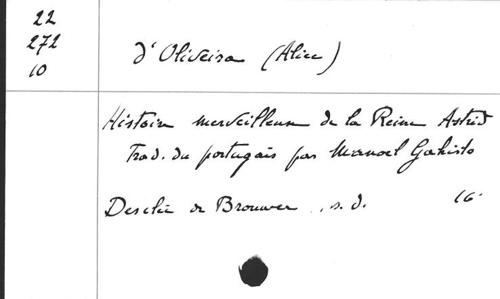 22
272
10
d'Oliveira (Alice)
Histoire merveilleuse de la Reine Astrid
Trad. du portugais par Manoel Gahisto
Desclée de Brouwer, s.d. 16°